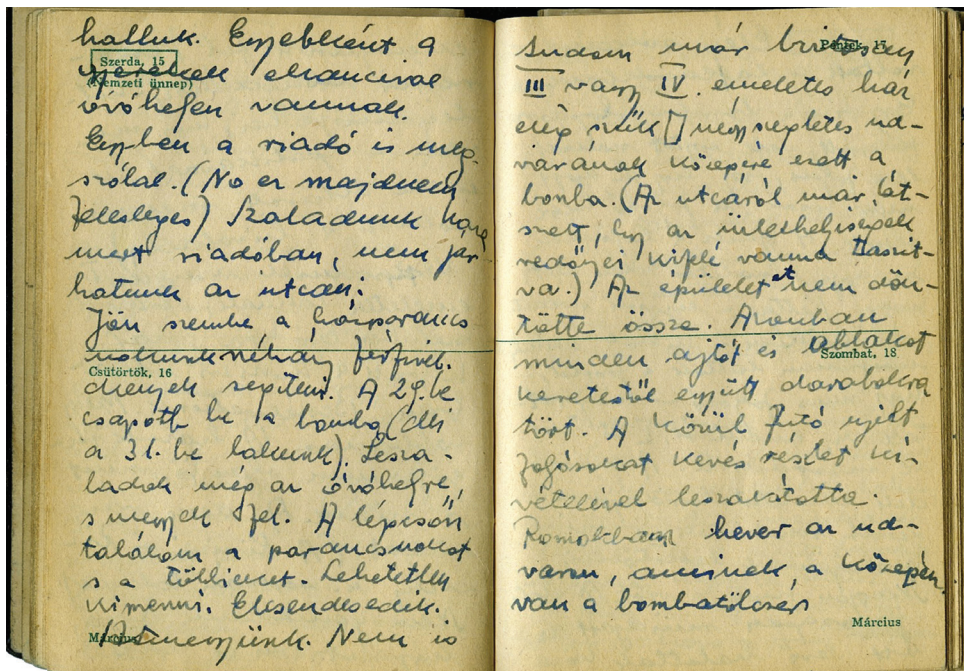 halluk. Egyebként a
Szerda, 15
gyerekek elvancival
(Nemzeti ünnep)
óvóhelyen vannak.
Egyben a riadó is meg-
szólal. (No ez majdnem
felesleges) Szaladunk haza
mert riadóban, nem jár
hatunk az utcán:
Jön szembe a házparancs
nokunk néhány férfivel.
Csütörtök, 16
menyek segíteni. A 29.be
csapott be a bomba (mi
a 31. be lakunk). Lesza-
ladok még az óvóhelyre,
s megyek fel. A lépcsőn
találom a parancsnokot
s a többieket. Lehetetlen
kimenni. Elcsendesedik.
Kimegyünk. Nem is
Március
Péntek, 17
tudom már biztosan
III vagy IV. emeletes ház
elég szűk négyszegletes ud-
varának közepére esett a
bomba. (Az utcáról már lát-
szott, hogy az üzlethelyiségek
redőnyei kifelé vannak taszít-
va.) Az épületet nem dön-
tötte össze. Azonban
minden ajtót és ablakot
Szombat, 18
keretestől együtt darabokra
tört. A körül futó nyílt
folyósokat kevés részlet ki-
vételével leszakította.
Romokban hever az ud-
varon, aminek a közepén
van a bombatölcsér
Március